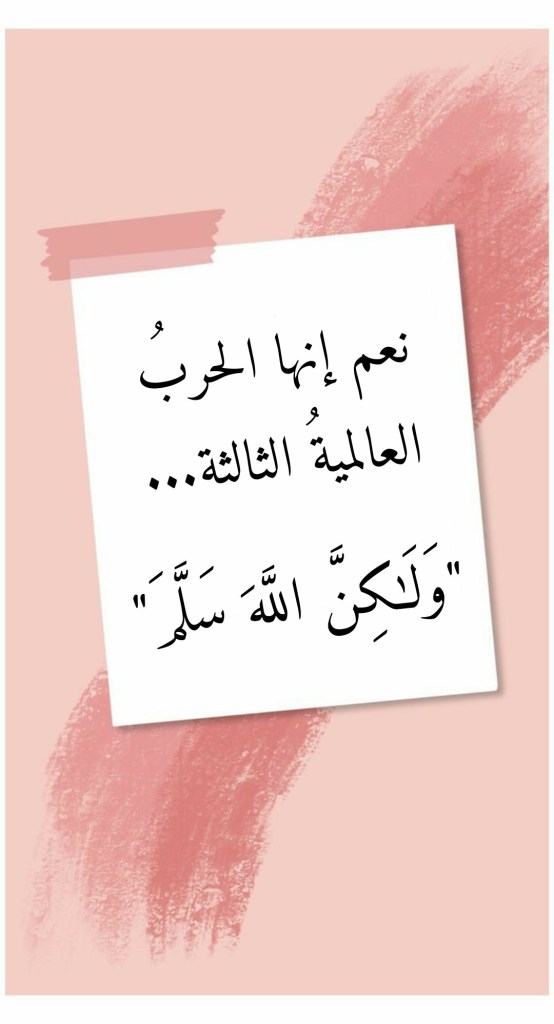 نعم إنها الحربُ
العالميةُ الثالثة...
"وَلَٰكِنَّ اللَّهَ سَلَّمَ"